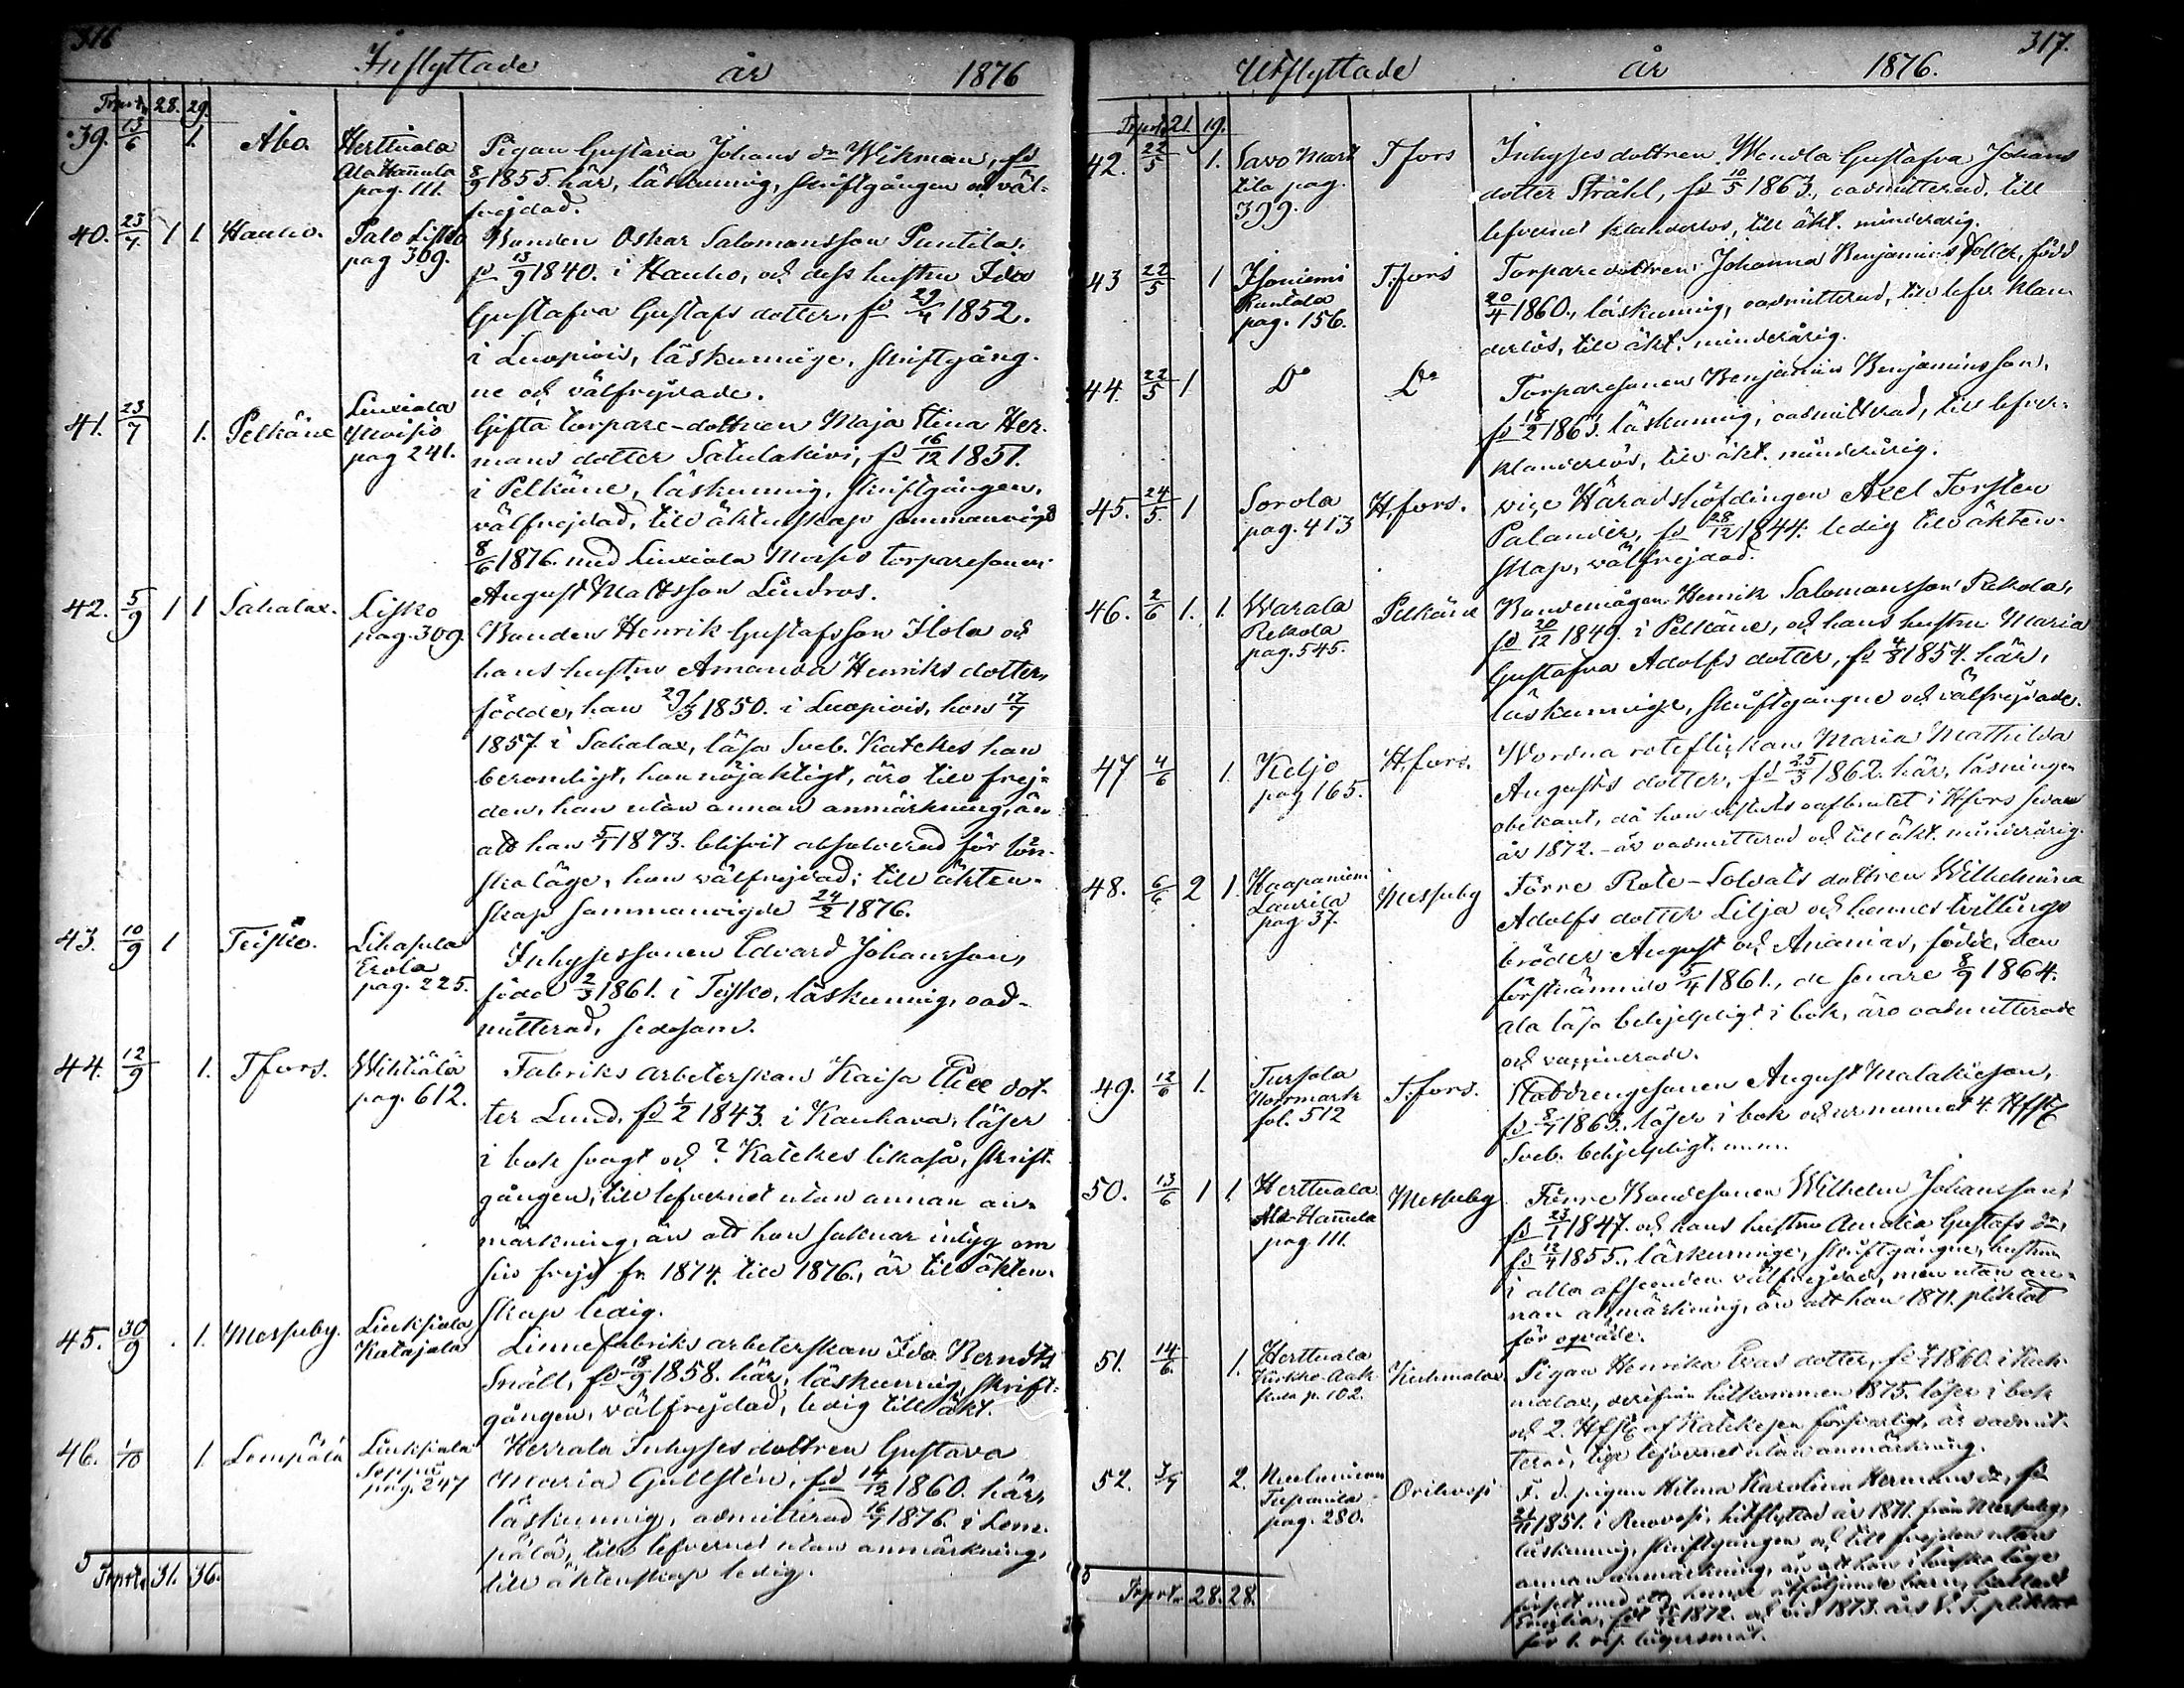 316
Inflyttade år 1876
Trprt. 28. 29.
39. 13/6 1. Åbo. Herttuala Ala Hannula pag. 111.
Pigan Gustava Johans dr Wikman, fd
8/9 1855. här, läskunnig, skriftgången och väl-
frejdad.
40. 23/7 1 1 Hauho. Palo Lisko pag 309.
Bonden Oskar Salomonsson Puntila,
fd 13/9 1840. i Hauho, och dess hustru Ida
Gustafva Gustafs dotter, fd 29/4 1852.
i Luopiois, läskunnige, skriftgång-
ne och välfrejdade.
41. 23/7 1. Pelkäne Liuxiala Moisio pag 241.
Gifta torpare-dottren Maja Stina Her-
mans dotter Satulakivi, fd 16/12 1851.
i Pelkäne, läskunnig, skriftgången,
välfrejdad, till äktenskap sammanvigd
8/6 1876. med Liuxiala Moisio torparesonen
August Mattsson Lindros.
42. 5/9 1 1 Sahalax. Lisko pag. 309.
Bonden Henrik Gustafsson Ilola och
hans hustru Amanda Henriks dotter,
födde, han 29/3 1850. i Luopiois, hon 17/7
1857 i Sahalax, läsa Sveb. Katekes han
beromligt, hon nöjaktigt, äro till frej-
den, han utan annan anmärkning, än
att han 5/1 1873. blifvit absolverad för lön-
skaläge, hon välfrejdad; till äkten-
skap sammanvigde 24/2 1876.
43. 10/9 1 Teisko. Lihasula Erola pag. 225.
Inhyssessonen Edvard Johansson,
född 2/3 1861. i Teisko, läskunnig, oad-
mitterad, sedesam.
44. 12/9 1. Tfors. Wihtiälä pag. 612.
Fabriks arbeterskan Kaisa Elice dot-
ter Lund, fd 1/2 1843. i Kauhava, läser
i bok svagt och ? Katekes likaså, skrift-
gången, till lefvernet utan annan an-
märkning, än att hon saknar intyg om
sin frejd fr. 1874. till 1876., är till äkten-
skap ledig.
45. 30/9 . 1. Messuby. Liuksiala Katajala
Linnefabriks arbeterskan Ida Berndts
Snäll, fd 18/9 1858. här, läskunnig, skrift-
gången, välfrejdad, ledig till äkt.
46. 1/10 1 Lempälä Liuksiala Seppä pag. 247
Herrala Inhysses dottren Gustava
Maria Gullstén, fd 14/12 1860. här,
läskunnig, admitterad 16/7 1876. i Lem-
pälä, till lefvernet utan anmärkning,
till äktenskap ledig.
Trprt. 31. 36.
317.
Utflyttade år 1876.
Trprt. 21. 19.
42. 22/5 1. Savo Mart tila pag. 399. Tfors
Inhysses dottren Wendla Gustafva Johans
dotter Stråhl, fd 10/5 1863., oadmitterad, till
lefvernet klanderlös, till äkt. minderårig.
43 22/5 1 Isoniemi Rantala pag. 156. T:fors
Torpare dottren Johanna Benjamins dotter, född
20/4 1860., läskunnig, oadmitterad, till lefv. klan-
derlös, till äkt. minderårig.
44. 22/5 1 Do Do
Torparesonen Benjamin Benjaminsson,
fd 18/2 1863. läskunnig, oadmitterad, till lefver.
klanderlös, till äkt. minderårig.
45. 24/5. 1 Sorola pag. 413 H.fors.
vice Häradshöfdingen Axel Torsten
Palander, fd 28/12 1844. ledig till äkten-
skap, välfrejdad.
46. 2/6 1. 1. Warala Rekola pag. 545. Pelkäne
Bondemågen Henrik Salomonsson Rekola,
fd 20/12 1849. i Pelkäne, och hans hustru Maria
Gustafva Adolfs dotter, fd 4/8 1854. här,
läskunnige, skriftgångne och välfrejdade.
47 4/6 1. Keljo pag 165. H.fors.
Wordna roteflickan Maria Mathilda
Augusts dotter, fd 25/3 1862. här, läsningen
obekant, då hon vistats oafbrutet i Hfors sedan
år 1872. - är oadmitterad och till äkt. minderårig.
48. 6/6 2 1. Haapaniemi Laurila pag 37. Messuby
Förre Rote-Soldats dottren Wilhelmina
Adolfs dotter Lilja och hennes tvillings
bröder August och Ananias, födde, den
förstnämnde 5/4 1861., de senare 8/9 1864.
ala läsa behjelpligt i bok, äro oadmitterade
och vaccinerade.
49. 12/6 1. Tursola Norrmark fol. 512 T:fors.
Stabdrengssonen August Malakiesson,
fd 8/7 1863. läser i bok och ur minnet 4. Hfst.
Sveb. behjelpligt m.m.
50. 13/6 1 1 Herttuala Ala-Hannula pag 111. Messuby
Förre Bondesonen Wilhelm Johansson,
fd 23/1 1847. och hans hustru Amalia Gustafs dr,
fd 12/4 1855., läskunnige, skriftgångne, hustrun
i alla afseenden välfrejdad, man utan an-
nan anmärkning, än att han 1871. pliktat
för
51. 14/6. 1. Herttuala Kirkko-Aak kula p. 102. Kuhmalax
Pigan Henrika Evas dotter, fd 1860. i Kuh-
malax, derifrån hitkommen 1875. läser i bok
och 2. Hfst. af Katekesen försvarligt, är oadmit-
terad, till lefvernet utan anmärkning.
52. 3/7 2. Huutiniemi pag. 280. Orihvesi
F. d. pigan Hilma Karolina Hermans dr, fd
1851. i Ruovesi, hitflyttad år 1871. från Messuby,
läskunnig, skriftgången och till frejden utan
annan anmärkning, än att hon i lönska läge
födt med ett, henne åtföljande barn, kalladt
Emilia, född 1872. och vid 1873. års V. T. pliktat
för 1. res. lägersmål.
Trprt. 28. 28.